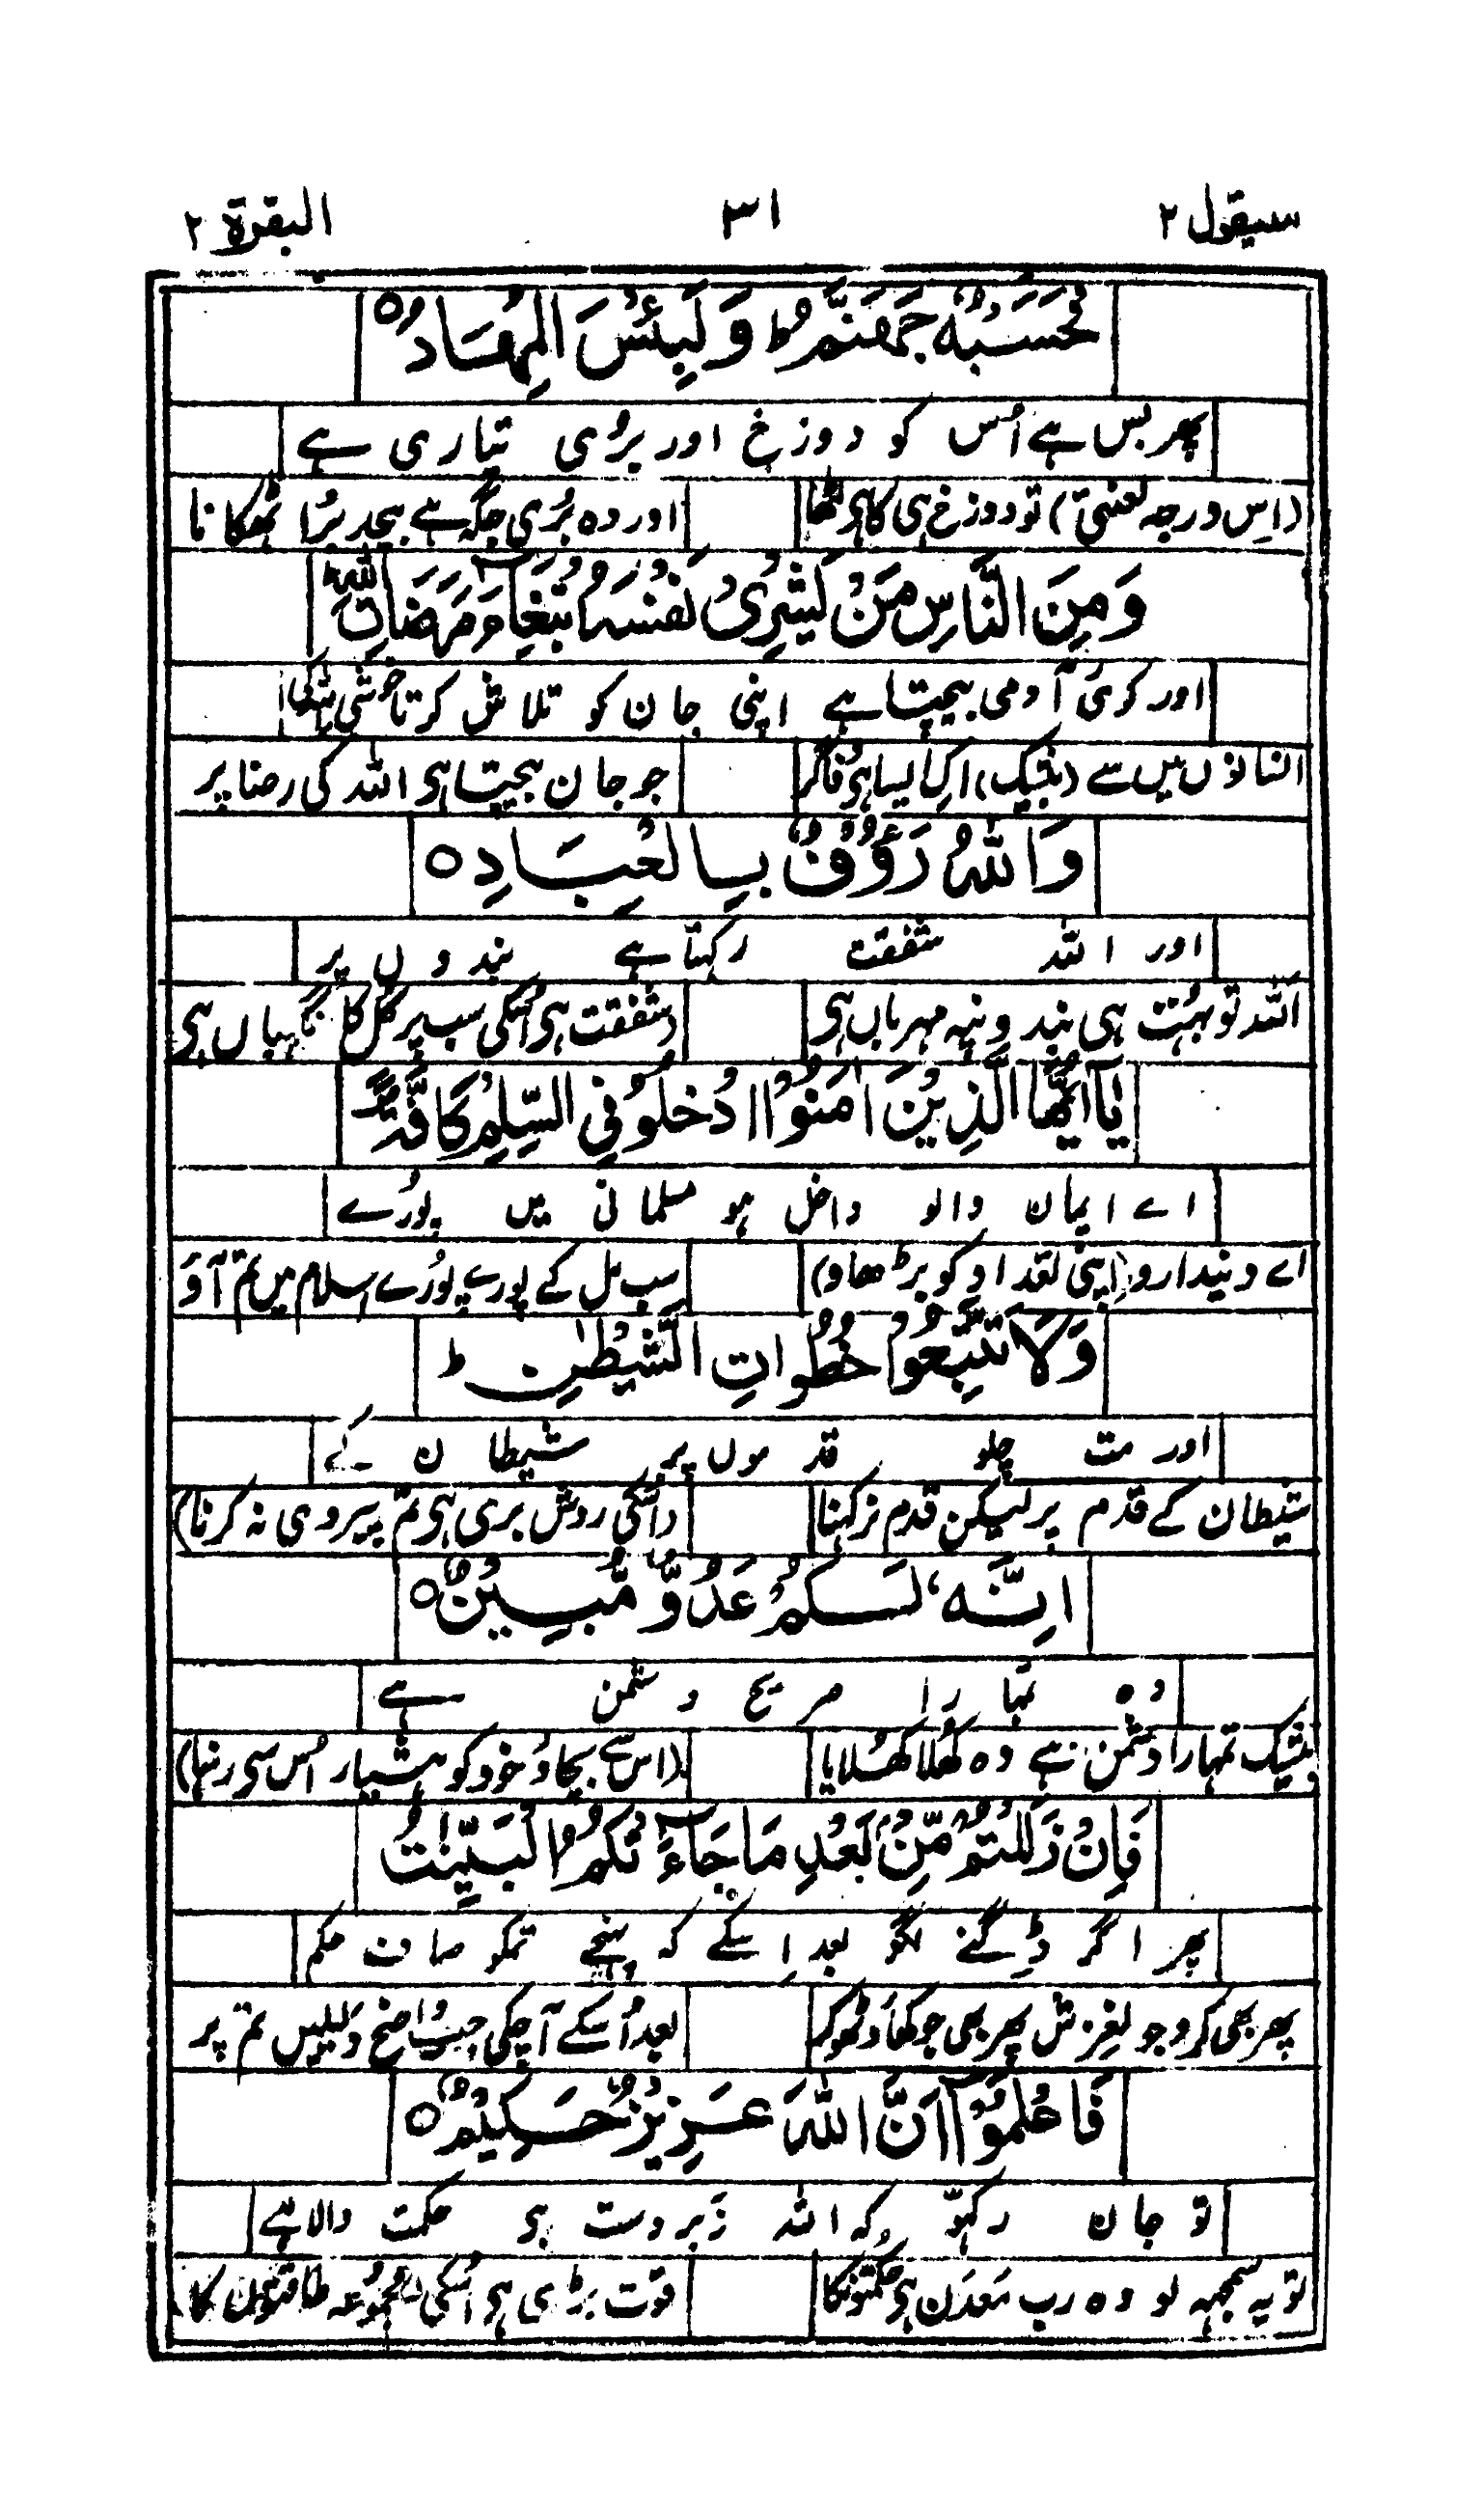 سیقول ۲ ۳۱ البقرة ۲
فَحَسْبُهٗ جَهَنَّمُ ؕ وَلَبِئْسَ الْمِهَادُ ○
پھر بس ہے اُس کو دوزخ اور بُری تیاری ہے
(اِس درجہ لعنتی تھا) تو دوزخ ہی کا ہو اور وہ بُری جگہ ہے بیحد بُرا ٹھکانا
وَمِنَ النَّاسِ مَنْ یَّشْرِیْ نَفْسَهُ ابْتِغَآءَ مَرْضَاتِ اللّٰهِ ؕ
اور کوئی آدمی بیچتا ہے اپنی جان کو تلاش کرتا خوشی اللہ کی
انسانوں میں سے (بیشک) اک ایسا ہو فاکر جو جان بیچتا ہو اللہ کی رضا پر
وَاللّٰهُ رَءُوْفٌۢ بِالْعِبَادِ ○
اور اللہ شفقت رکہتا ہے بندوں پر
اللہ تو بہُت ہی بندونپہ مہرباں ہی (شفقت ہی اُسکی سب پر کُل کا نگہباں ہی
یٰۤاَیُّهَا الَّذِیْنَ اٰمَنُوا ادْخُلُوْا فِی السِّلْمِ كَآفَّةً
اے ایمان والو داخل ہو مسلمانی میں پورُے
اے دیندارو (اپنی تعداد کو بڑھاو) سب مل کے پورے پورُے اسلام میں تم آؤ
وَلَا تَتَّبِعُوْا خُطُوَاتِ الشَّیْطٰنِ ؕ
اور مت چلو قدموں پر شیطان کے
شیطان کے قدم پر لیکن قدم نرکہنا (اُسکی روش بری ہی تم پیروی نہ کرنا)
اِنَّهٗ لَكُمْ عَدُوٌّ مُّبِیْنٌ ○
وہ تہارا صریح دشمن ہے
بیشک تمہارا دشمن ہے وہ کُھلا کھُلایا (اس سے بچاؤ خود کو ہشیار اُس سی رہنا)
فَاِنْ زَلَلْتُمْ مِّنْۢ بَعْدِ مَا جَآءَتْكُمُ الْبَیِّنٰتُ
پھر اگر ڈِگنے لگو بعد اِسکے کہ پہنچے تمکو صاف حکم
پھر بھی کرو جو لغزش پھر بھی جو کھاؤ ٹھوکر بعد اُسکے آچکی جب واضح دلیلیں تم پر
فَاعْلَمُوْۤا اَنَّ اللّٰهَ عَزِیْزٌ حَكِیْمٌ ○
تو جان رکہوّ کہ اللہ زبردست ہی حکمت والا ہے
تو یہ سمجہہ لو وہ رب مَعدَن ہی حکمتونکا قوت بڑی ہی اُسکی مجموُعہ طاقتوں کا